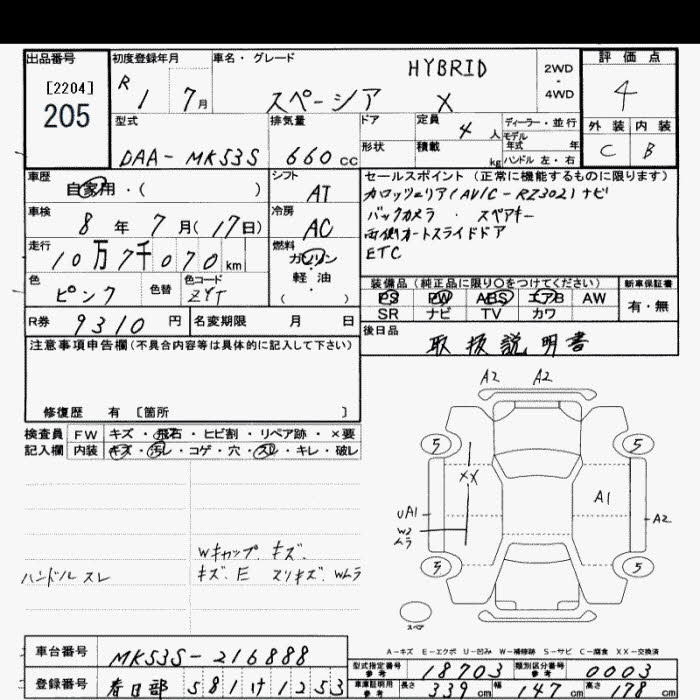 出品番号 初度登録年月 車名・グレード 評価点
[2204]
205
R 1 7月
HYBRID
スペーシア X
2WD
・
4WD
4
型式 排気量 ドア 定員 4 人 ディーラー・並行
モデル
年式 年
外装 内装
DAA-MK53S 660cc 形状 積載 kg ハンドル 左・右
C B
車歴 自家用・( ) シフト AT
セールスポイント(正常に機能するものに限ります)
カロッツェリア(AVIC-RZ302)ナビ
バックカメラ ・ スペアキー
両側オートスライドドア
ETC
車検 8年7月(17日) 冷房 AC
走行 10万7千070km 燃料 ガソリン
軽・油
( )
色 ピンク 色替 色コード ZYT
装備品(純正品に限り○をつけてください) 新車保証書
PS PW ABS エアB AW 有・無
SR ナビ TV カワ
R券 9310円 名変期限 月 日
後日品 取扱説明書
注意事項申告欄(不具合内容等は具体的に記入して下さい)
修復歴 有 [箇所 ]
検査員 FW キズ・飛石・ヒビ割・リペア跡・×要
記入欄 内装 キズ・汚レ・コゲ・穴・スレ・キレ・破レ
A2 A2
5 5
XX
A1
UA1
A2
W2
ムラ
5 5
スペア
Wキャップ キズ.
ハンドル スレ キズ. E スリキズ. Wムラ
A-キズ E-エクボ U-凹み W-補修跡 S-サビ C-腐食 XX-交換済
車台番号 MK53S-216888
型式指定番号
参考 18703 類別区分番号
参考 0003
登録番号 春日部 581 け 1253
車庫証明用
参考 長さ 339cm 幅 147cm 高さ 178cm